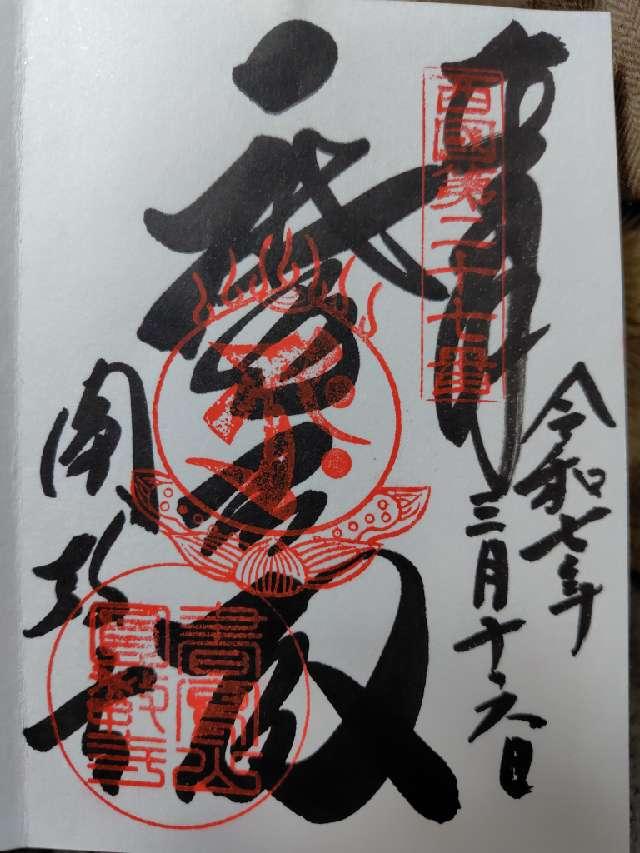 奉拝
西國第二十七番
令和七年
三月十六日
摩尼殿
圓教寺
書寫山
圓教寺